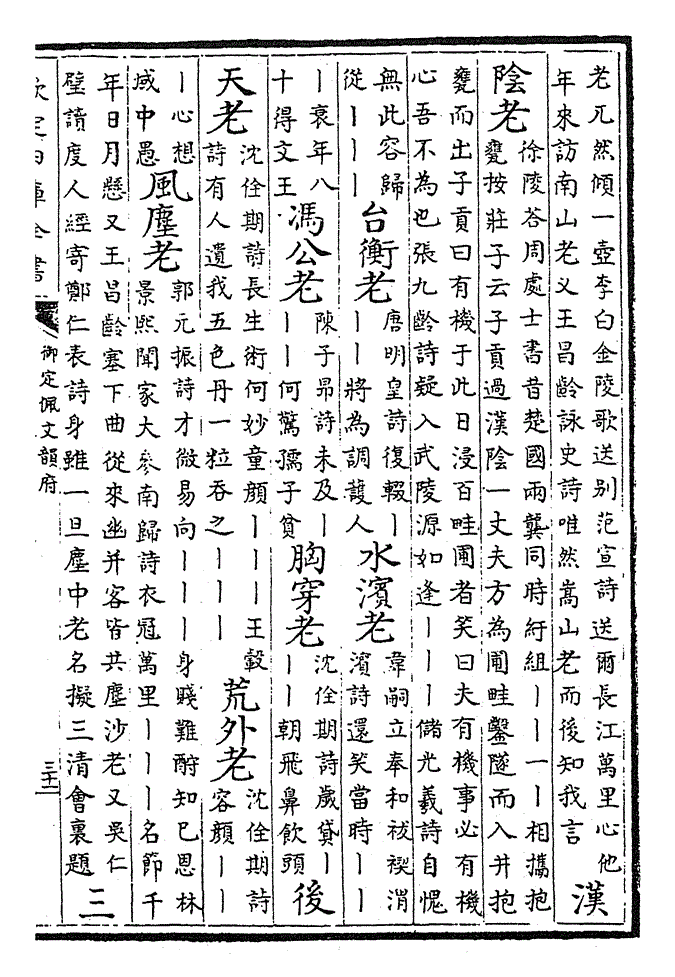 老兀然傾一壺李白金陵歌送别范宣詩送爾長江萬里心他
年來訪南山老又王昌齡詠史詩唯然嵩山老而後知我言
漢
陰老
徐陵荅周處士書昔楚國兩龔同時紆組丨丨一丨相攜抱
甕按莊子云子貢過漢陰一丈夫方為圃畦鑿隧而入井抱
甕而出子貢曰有機于此日浸百畦圃者笑曰夫有機事必有機
心吾不為也張九齡詩疑入武陵源如逢丨丨丨儲光羲詩自愧
無此容歸
從丨丨丨
台衡老
唐明皇詩復輟丨
丨丨將為調護人
水濱老
韋嗣立奉和祓禊渭
濱詩還笑當時丨丨
丨衰年八
十得文王
馮公老
陳子昻詩未及丨
丨丨何驚孺子貧
胸穿老
沈佺期詩歲貸丨
丨丨朝飛鼻飲頭
後
天老
沈佺期詩長生術何妙童顔丨丨丨王轂
詩有人遺我五色丹一粒吞之丨丨丨
荒外老
沈佺期詩
容顔丨丨
丨心想
烕中愚
風塵老
郭元振詩才微易向丨丨丨身賤難酧知已恩林
景熈聞家大參南歸詩衣冠萬里丨丨丨名節千
年日月懸又王昌齡塞下曲從來幽并客皆共塵沙老又吳仁
璧讀度人經寄鄭仁表詩身雖一旦塵中老名擬三清會裏題
三
欽定四庫全書
御定佩文韻府
三十二